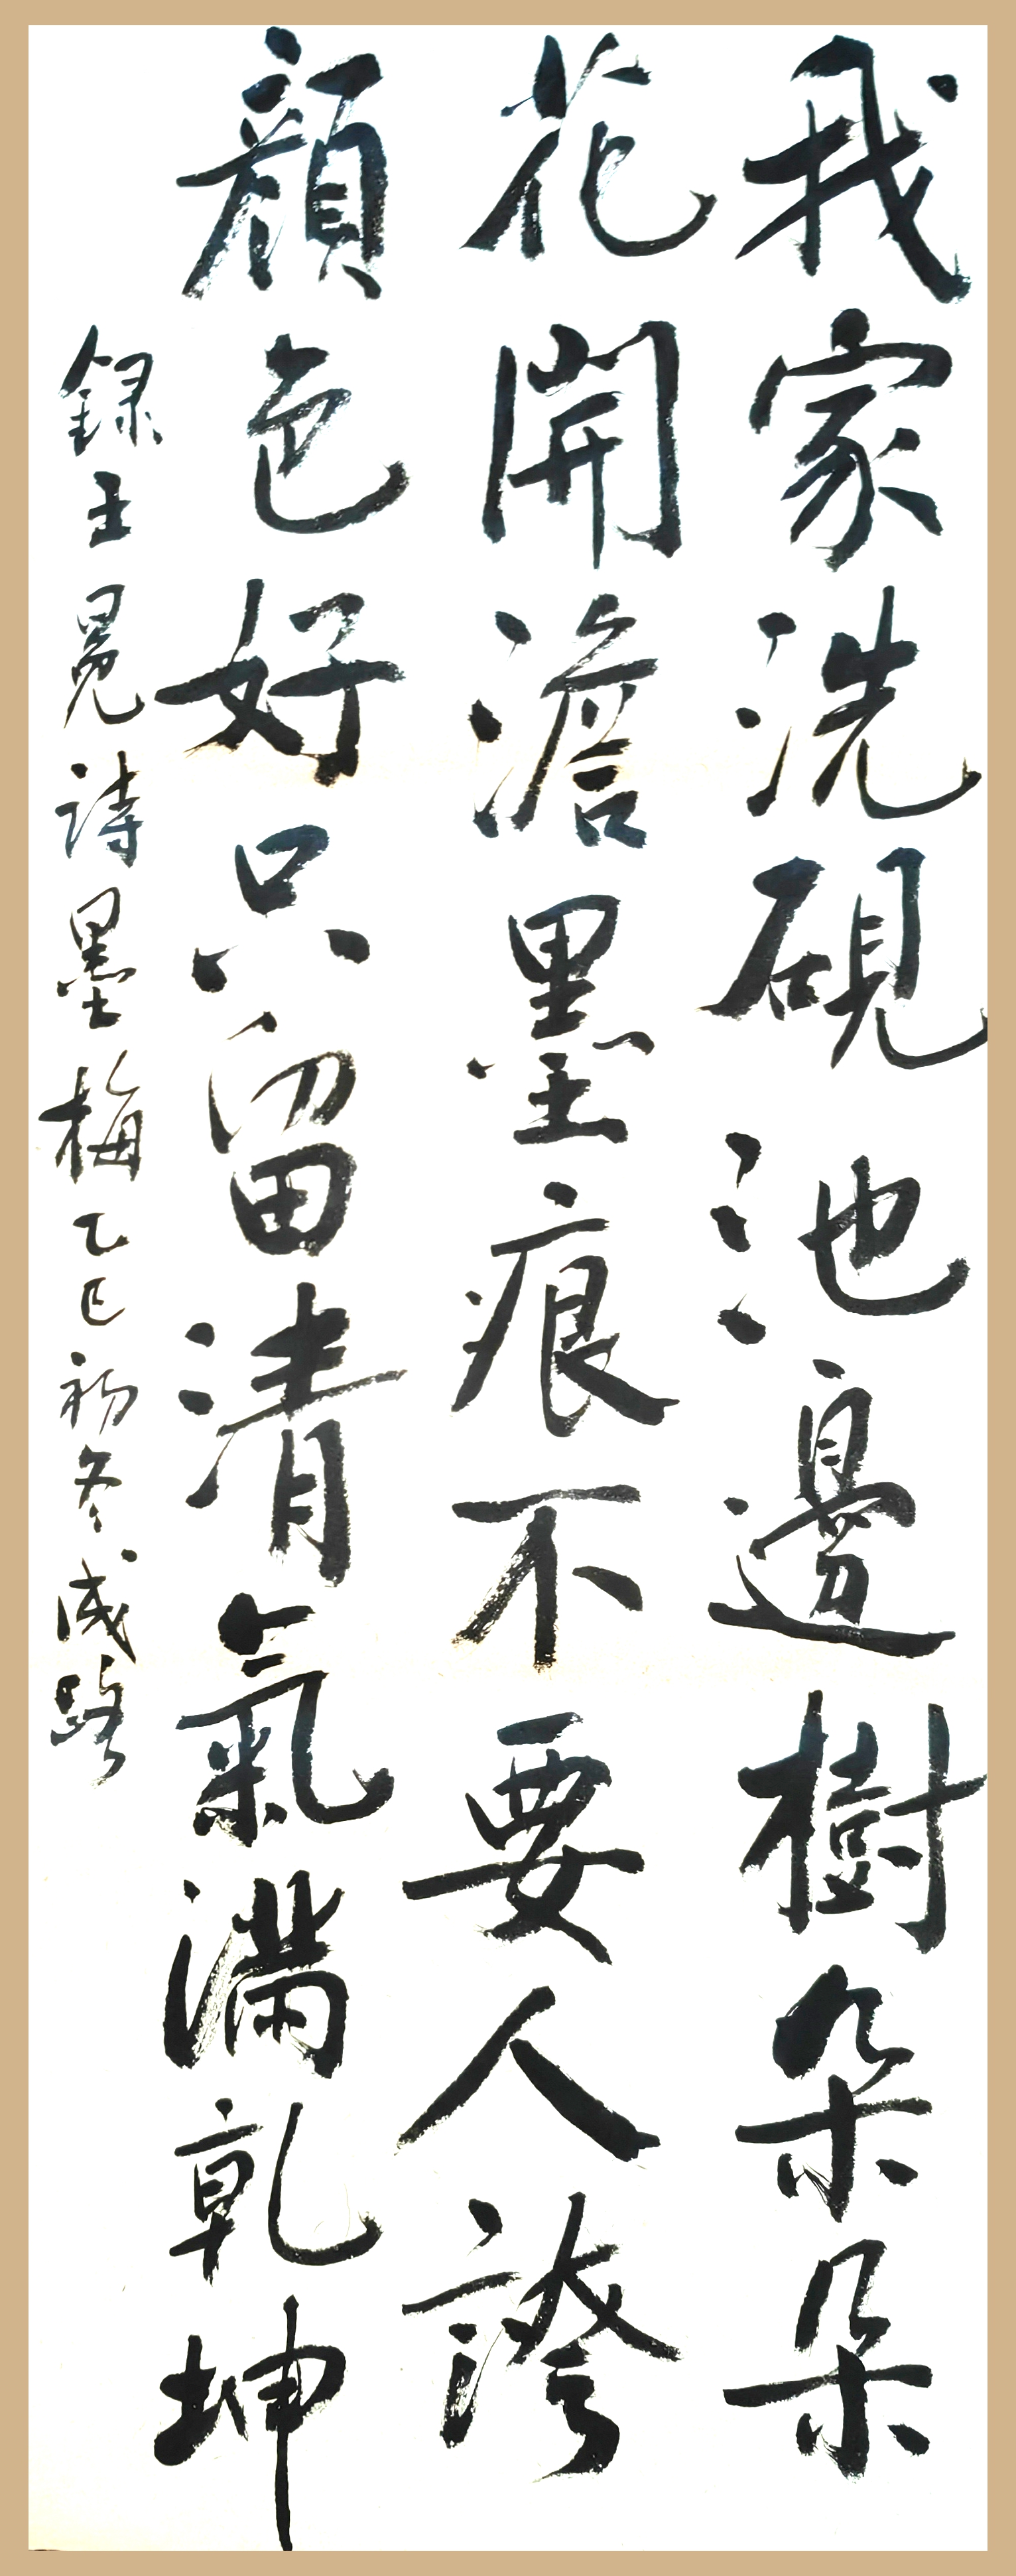 我家洗硯池邊樹朵朵
花開澹墨痕不要人誇
顏色好只留清氣滿乾坤
録王冕詩墨梅乙巳初冬成路